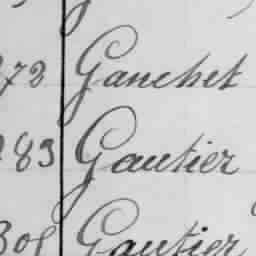 72 Ganchet
83 Gautier
305 Gautier